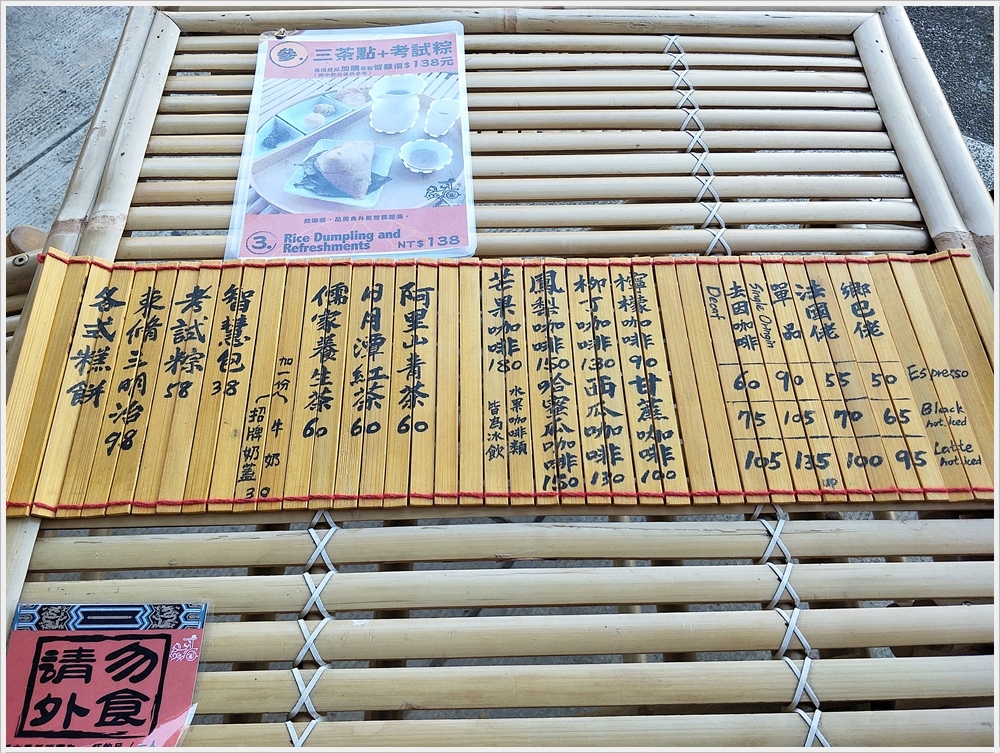 參. 三茶點+考試粽
智慧價$138元
3. Rice Dumpling and
Refreshments
NT$138
鄉巴佬 50 65 95
法國佬 55 70 100
單品 Single Origin 90 105 135 up
去因咖啡 Decaf 60 75 105
Espresso
Black
hot, iced
Latte
hot, iced
檸檬咖啡 90 甘蔗咖啡 100
柳丁咖啡 130 西瓜咖啡 130
鳳梨咖啡 150 哈蜜瓜咖啡 150
芒果咖啡 180
水果咖啡類
皆為冰飲
阿里山青茶 60
日月潭紅茶 60
儒家養生茶 60
加一份
牛奶
招牌奶蓋 30
智慧包 38
考試粽 58
束脩三明治 98
各式糕餅
請勿
外食